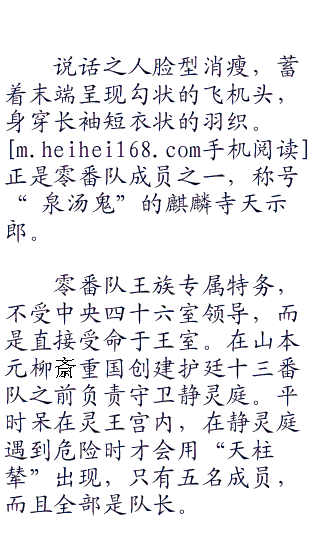 说话之人脸型消瘦，蓄
着末端呈现勾状的飞机头，
身穿长袖短衣状的羽织。
[m.heihei168.com手机阅读]
正是零番队成员之一，称号
“ 泉汤鬼”的麒麟寺天示
郎。
零番队王族专属特务，
不受中央四十六室领导，而
是直接受命于王室。在山本
元柳斎重国创建护廷十三番
队之前负责守卫静灵庭。平
时呆在灵王宫内，在静灵庭
遇到危险时才会用“天柱
辇”出现，只有五名成员，
而且全部是队长。